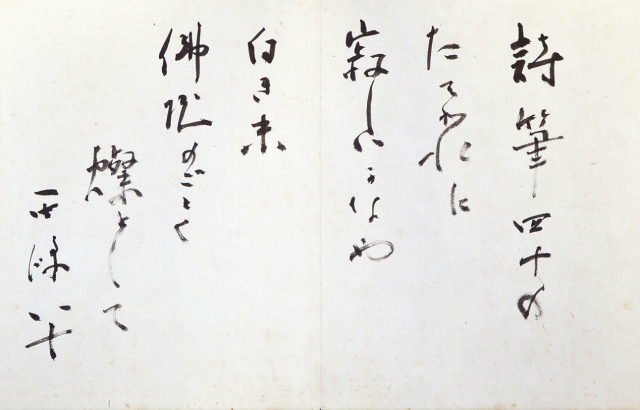 詩筆四十の
たそかれに
寂しいかなや
白き
のごとく
燦として
西條八十